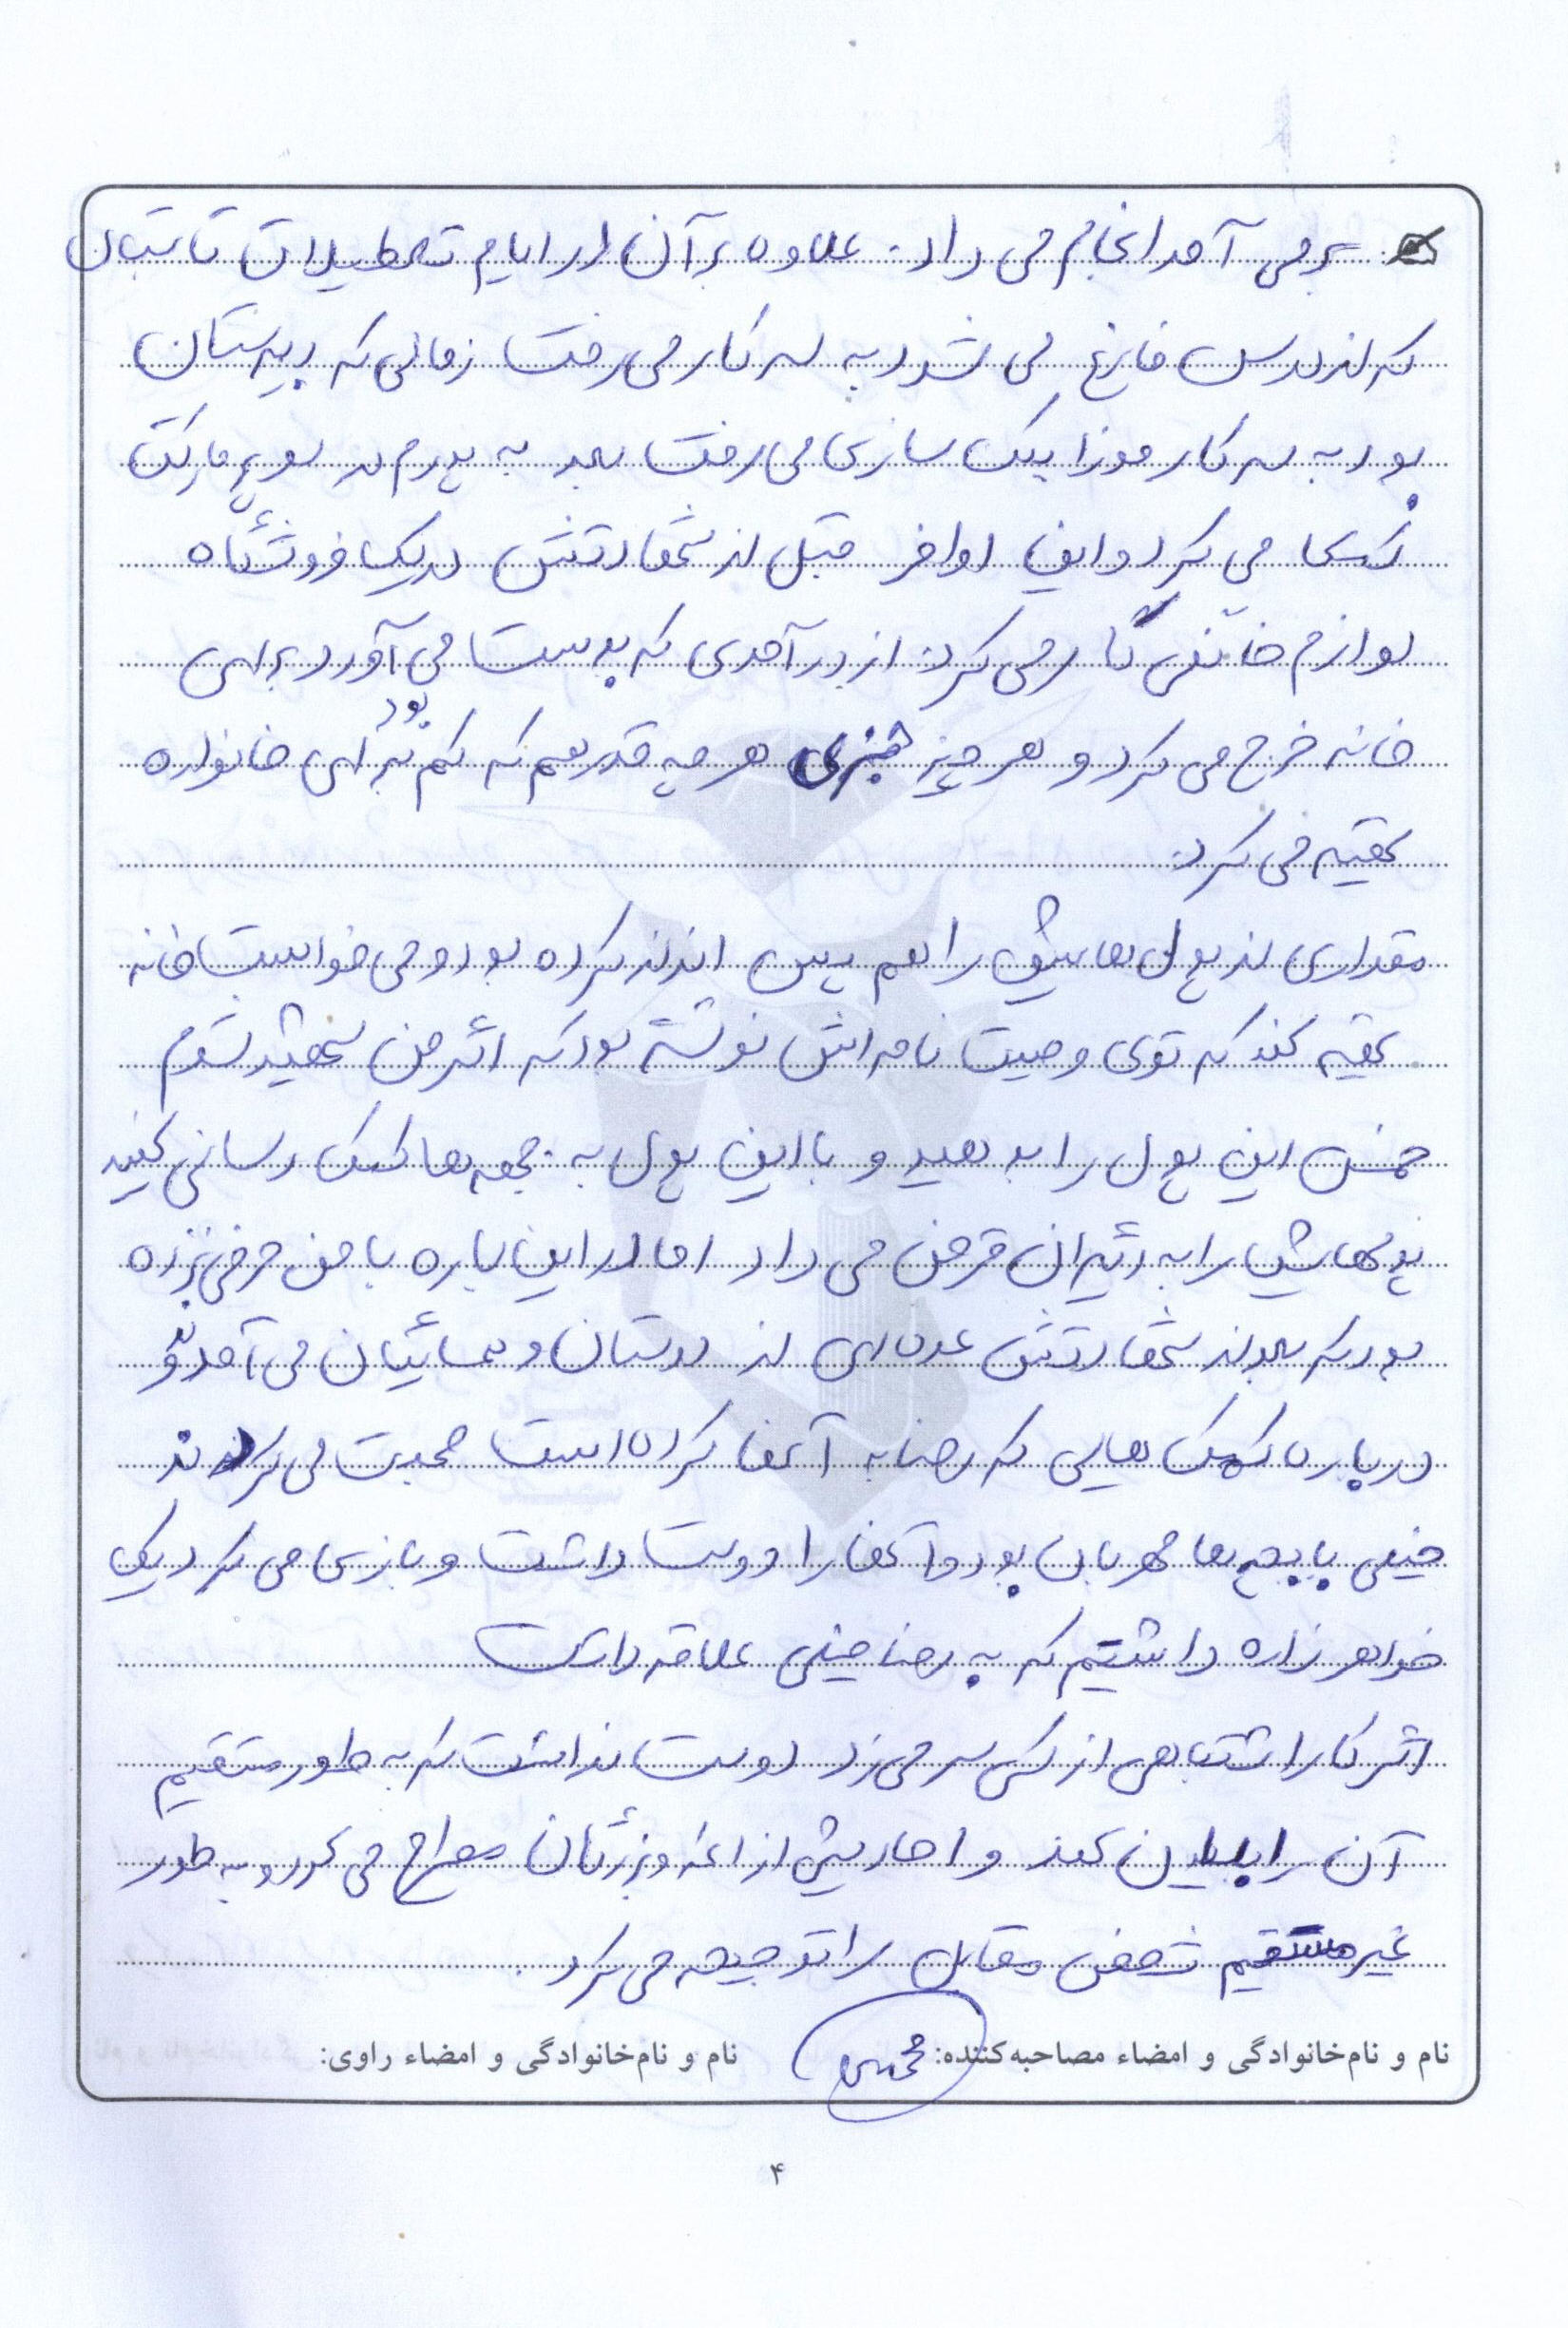 برمی آمد انجام می داد. علاوه بر آن در ایام تعطیلات تابستان
که از درس فارغ می شد به سر کار می رفت زمانی که دبیرستان
بود به سر کار موزاییک سازی می رفت بعد به پدرم در سوپر مارکت
کمک می کرد و این اواخر قبل از شهادتش در یک فروشگاه
لوازم خانگی کار می کرد. از درآمدی که بدست می آورد برای
خانه خرج می کرد و هر چیز هر چه قدر هم که کم بود برای خانواده
تهیه می کرد.
مقداری از پول هایش را هم پس انداز کرده بود و می خواست خانه
تهیه کند که توی وصیت نامه اش نوشته بود که اگر من شهید شدم
خمس این پول را بدهید و با این پول به جبهه ها کمک رسانی کنید
پولهایش را به دیگران قرض می داد اما در این باره با من حرفی نزده
بود که بعد از شهادتش عده ای از دوستان و همسایگان می آمدند و
درباره کمک هایی که رضا به آنها کرده است صحبت می کردند
خیلی با بچه ها مهربان بود و آنها را دوست داشت و بازی می کرد یک
خواهر زاده داشتیم که به رضا خیلی علاقه داشت
اگر کار اشتباهی از کسی سر می زد دوست نداشت که به طور مستقیم
آن را بیان کند و احادیثی از ائمه و بزرگان مطرح می کرد و به طور
غیر مستقیم شخص مقابل را توجیه می کرد.
نام و نام‌خانوادگی و امضاء مصاحبه‌کننده: نام و نام‌خانوادگی و امضاء راوی:
۴